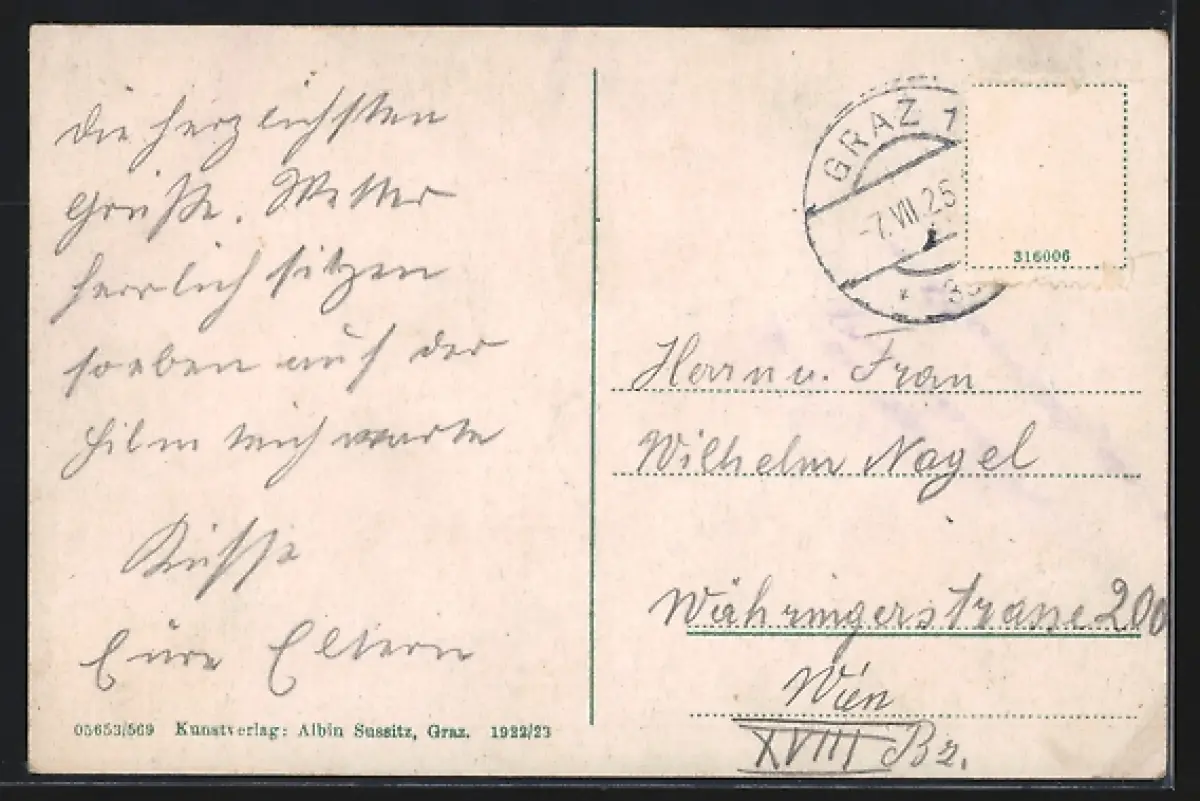 die herzlichsten
Grüße. Wetter
herrlich sitzen
soeben auf der
Hilmteichwarte
Küsse
Eure Eltern
05653/569 Kunstverlag: Albin Sussitz, Graz. 1922/23
GRAZ 1
-7.VII.25
* 3
316006
Herrn u. Frau
Wilhelm Nagel
Währingerstrasse 200
Wien
XVIII Bz.